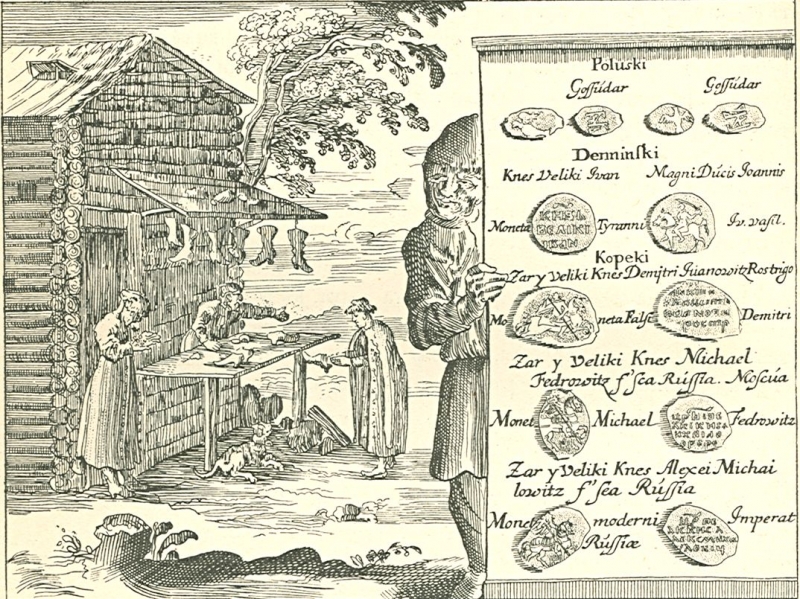 Poluski
Gossúdar Gossúdar
Denninski
Knes Veliki Ivan Magni Dúcis Ioannis
Moneta Tyranni Iv. vasil.
КНЕЗЬ
ВЕЛІКІ
ІВАН
Kopeki
Zar y Veliki Knes Demitri Iuanowitz Rostrigo
Mo neta Falsé Demitri
Zar y Veliki Knes Michael
Fedrowitz f'sea Rússia. Moscúa
Monet Michael Fedrowitz
Zar y Veliki Knes Alexei Michai
lowitz f'sea Rússia
Monet moderni Imperat
Rússiæ